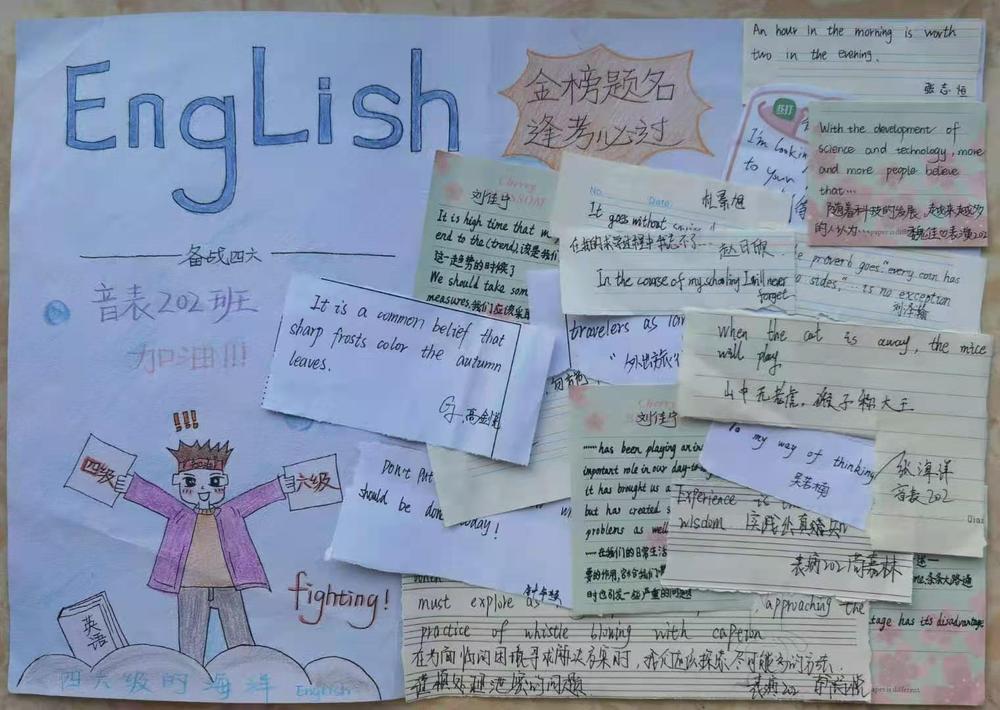 EngLish
金榜题名
逢考必过
备战四六
音表202班
加油!!!
!!!
四级
六级
fighting!
英语
四六级的海洋 English
An hour in the morning is worth
two in the evening.
张志恒
I'm lookin
to your
With the development of
science and technology, more
and more people believe
that...
随着科技的发展,越来越多
的人认为
Cherry
刘佳宁
It is high time that w
end to the (trend).该是我们
这一趋势的时候了
We should take som
measures.我们应该采
No.
Date.
It goes without
在我的求学过程中书忘不了...
In the course of my schooling I will never
forget
e proverb goes:"every coin has
o sides,"... is no exception
It is a common belief that
sharp frosts color the autumn
leaves.
travelers as
When the cat is away, the mice
will play.
山中无老虎,猴子称大王
To my way of thinking
吴若楠
张海洋
音表202
Don't put
should be don today!
Cherry
刘佳宁
......has been playing an in
important role in our day-to
it has brought us a
but has created s
problems as well
......在我们的日常生活
要的作用,它给我们带
时也引发一些严重的问题
Experience is
wisdom 实践出真知
表演202 周嘉林
条条大路通
tage has its disadvantage
must explore as
, approaching the
practice of whistle blowing with caption
在为面临的困境寻求解决方案时,我们应该探索尽可能多的方法.
谨慎处理泄密的问题
表演202